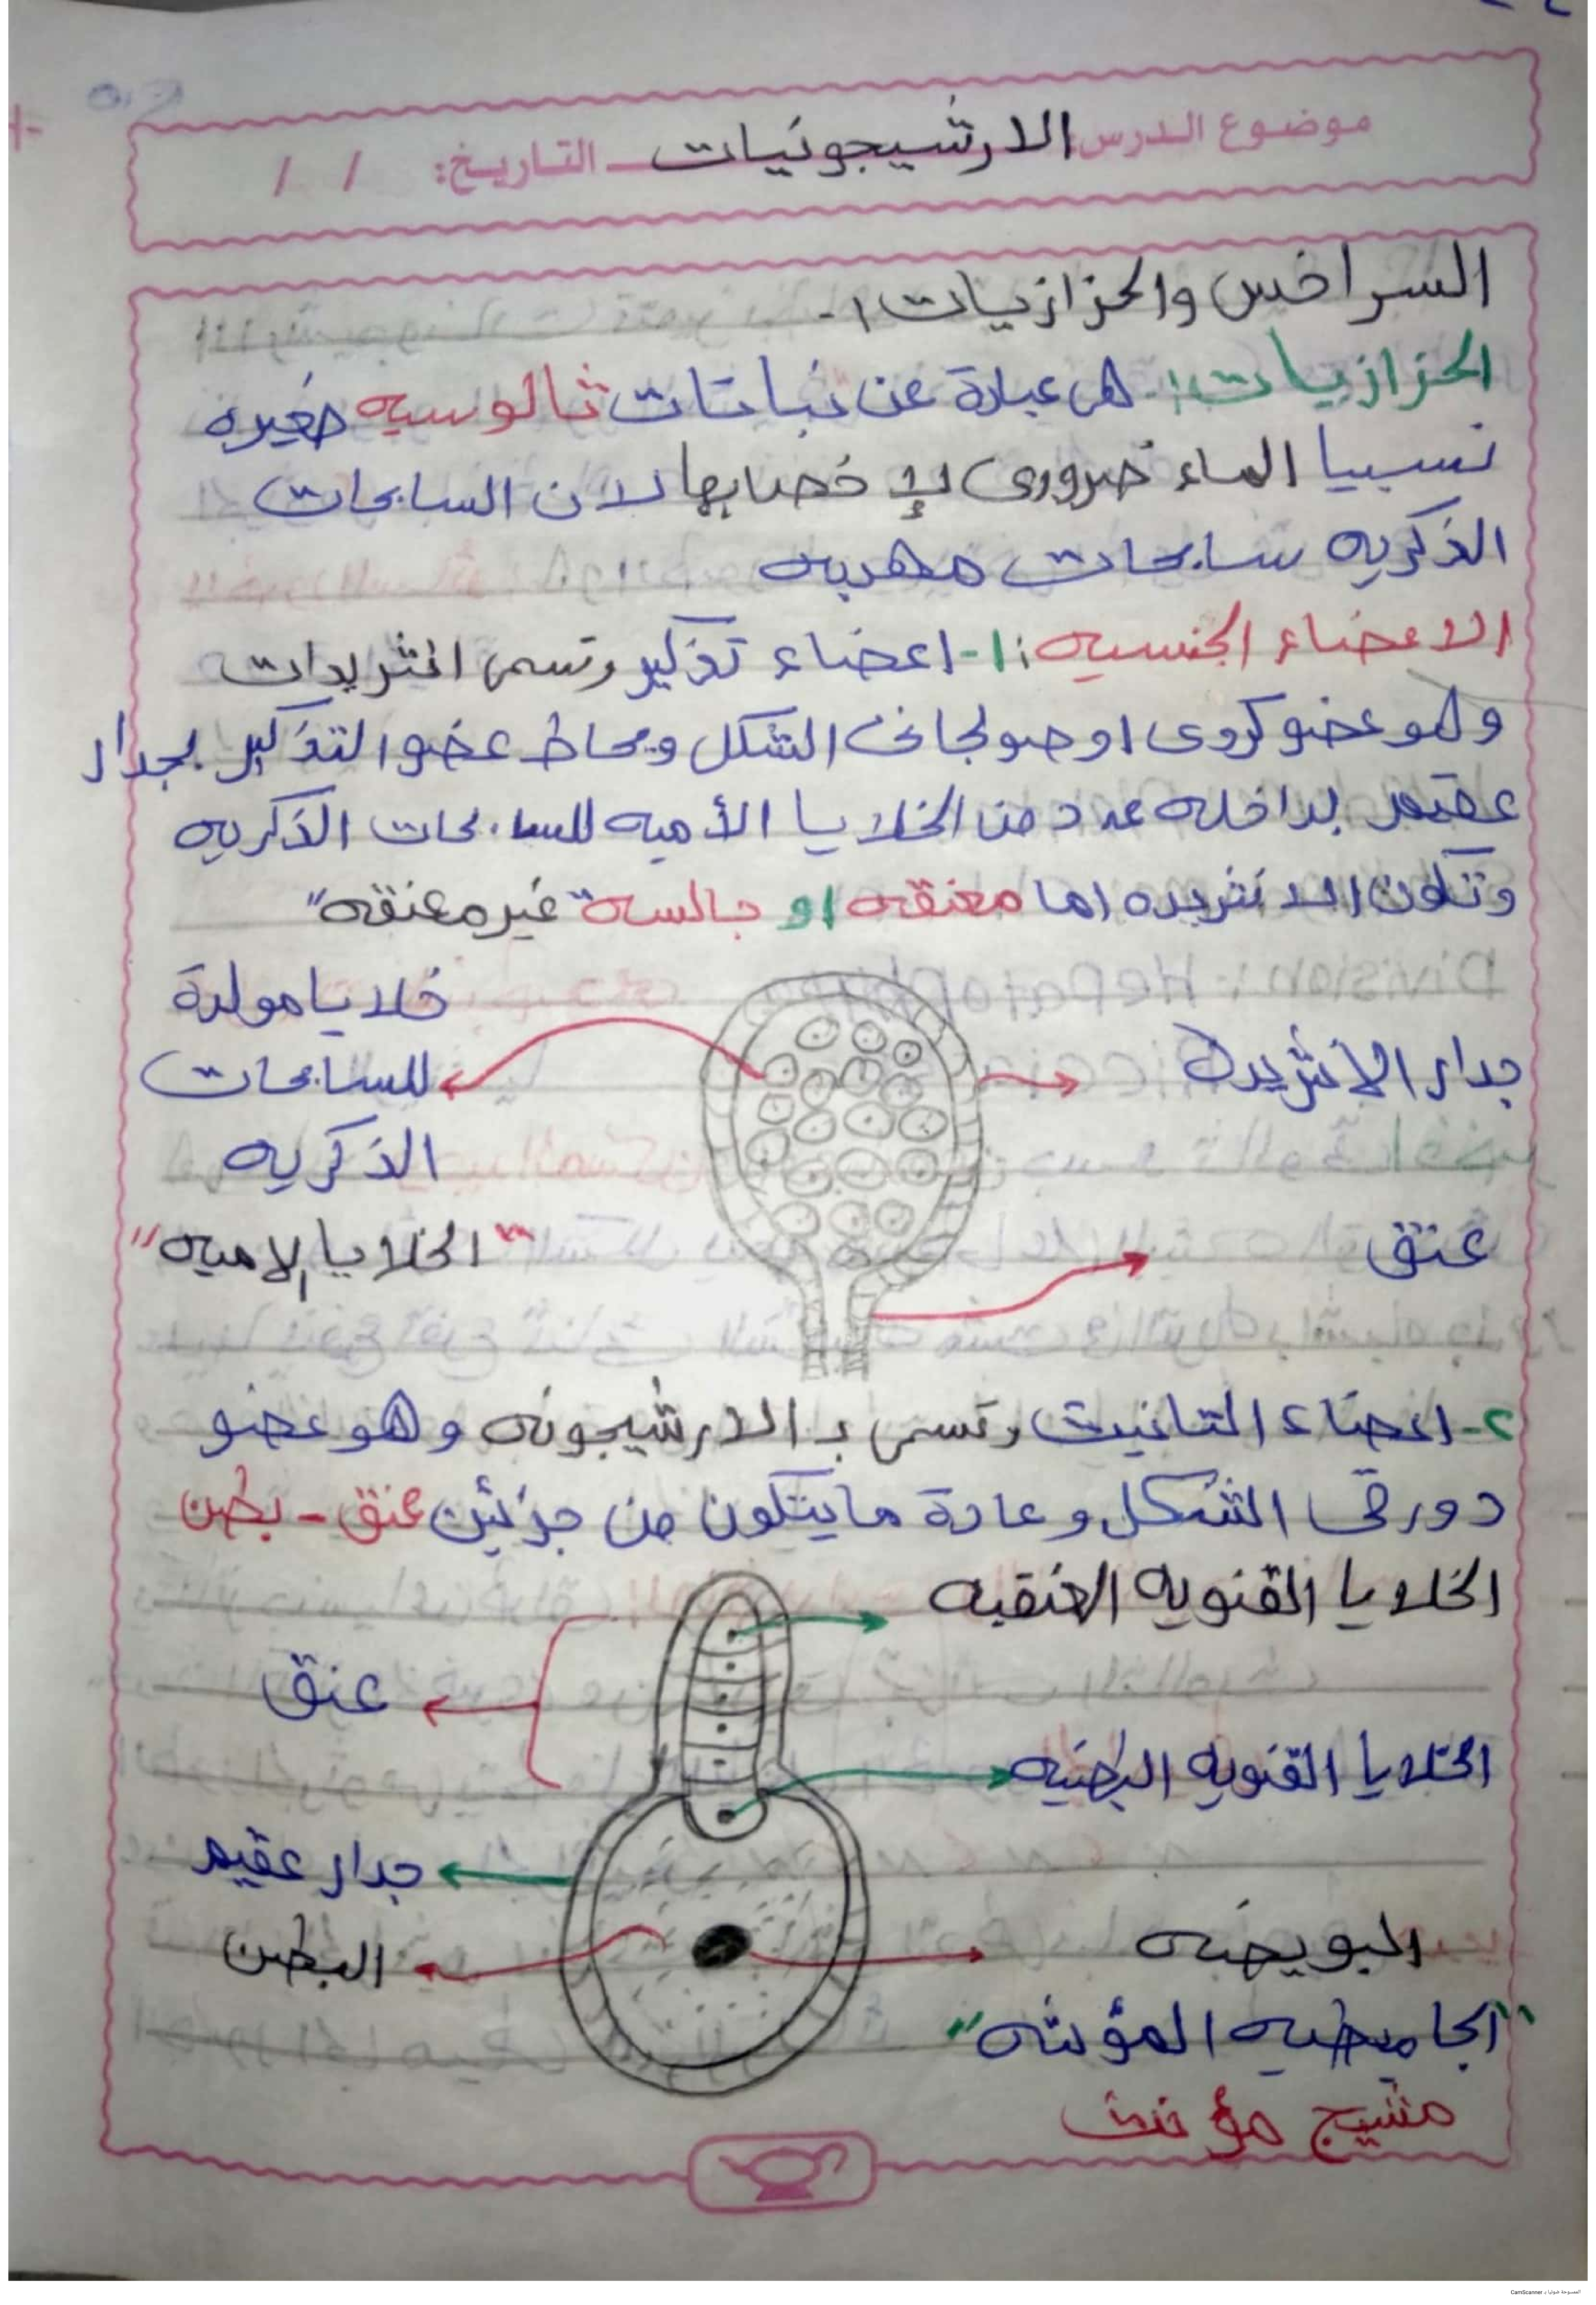 موضوع الدرس: الارشيجونيات التاريخ: / /
السراخس والحزازيات :-
الحزازيات :- هى عبارة عن نباتات ثالوسيه صغيره
نسبيا الماء ضرورى لإ خصابها لان السابحات
الذكريه سابحات مهدبه
الاعضاء الجنسيه : ١- اعضاء تذكير وتسمى انثريدات
وهو عضو كروى او صولجانى الشكل ويحاط عضو التذكير بجدار
عقيم بداخله عدد من الخلايا الأميه للسابحات الذكريه
وتكون الانثريده اما معنقه او جالسه "غير معنقه"
خلايا مولدة
للسابحات
الذكريه
"الخلايا الاميه"
جدار الانثريده
عنق
٢- اعضاء التانيث وتسمى بـ الارشيجونه وهو عضو
دورقى الشكل وعادة مايتكون من جزئين عنق - بطن
الخلايا القنويه العنقيه
عنق
الخلايا القنويه البطنيه
جدار عقيم
البطن
البويضه
"الجاميطيه المؤنثه"
مشيج مؤنث
الممسوحة ضوئيا بـ CamScanner